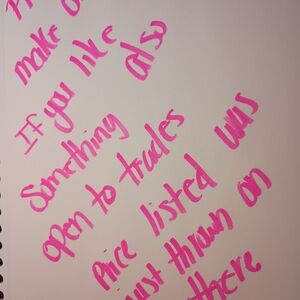 make
If you like
Something also
open to trades
Price listed was
just thrown on
there